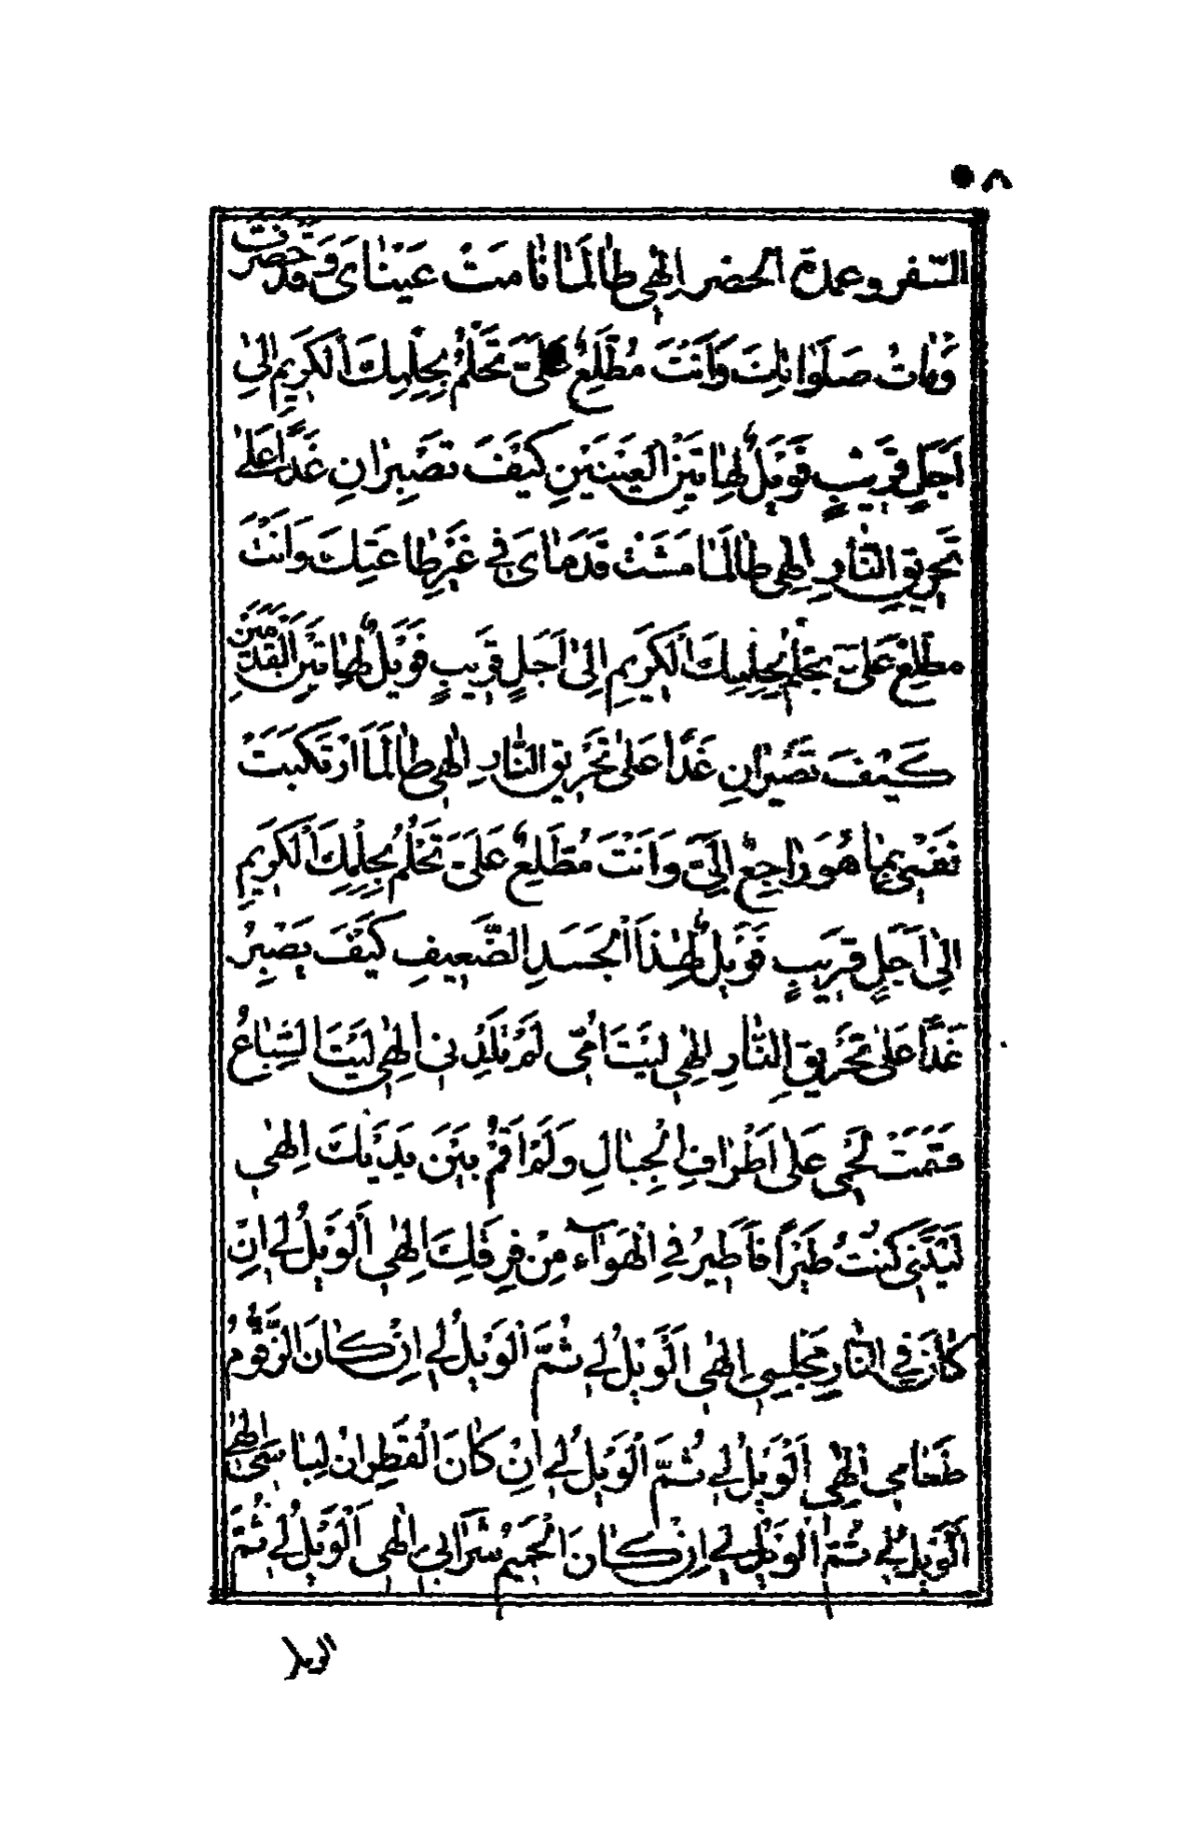 ٥٨
السّفر وعمدة الحضر اِلٰهى طالَمٰا نٰامَتْ عَيْنٰاىَ وَقَدْ حَضَرَتْ
اَوْقٰاتُ صَلَوٰاتِكَ وَاَنْتَ مُطَّلِعٌ عَلَىَّ تَحْلُمُ بِحِلْمِكَ الْكَرِيمِ اِلىٰ
اَجَلٍ قَرِيبٍ فَوَيْلٌ لِهٰاتَيْنِ الْعَيْنَيْنِ كَيْفَ تَصْبِرٰانِ غَدًا عَلىٰ
تَحْرِيقِ النّٰارِ اِلٰهى طٰالَمٰا مَشَتْ قَدَمٰاىَ فِى غَيْرِ طٰاعَتِكَ وَاَنْتَ
مطَّلِعٌ عَلَىَّ تَحْلُمُ بِحِلْمِكَ الْكَرِيمِ اِلىٰ اَجَلٍ قَرِيبٍ فَوَيْلٌ لِهٰاتَيْنِ الْقَدَمَيْنِ
كَيْفَ تَصْبِرٰانِ غَدًا عَلىٰ تَحْرِيقِ النّٰارِ اِلٰهى طٰالَمَا ارْتَكَبَتْ
نَفْسِى بِمٰا هُوَ رٰاجِعٌ اِلَىَّ وَاَنْتَ مُطَّلِعٌ عَلَىَّ تَحْلُمُ بِحِلْمِكَ الْكَرِيمِ
اِلىٰ اَجَلٍ قَرِيبٍ فَوَيْلٌ لِهٰذَا الْجَسَدِ الضَّعِيفِ كَيْفَ يَصْبِرُ
غَدًا عَلىٰ تَحْرِيقِ النّٰارِ اِلٰهِى لَيْتَ اُمّى لَمْ تَلِدْنِى اِلٰهِى لَيْتَ السِّبٰاعُ
قَسَمَتْ لَحْمِى عَلىٰ اَطْرٰافِ الْجِبٰالِ وَلَمْ اَقُمْ بَيْنَ يَدَيْكَ اِلٰهِى
لَيْتَنِى كُنْتُ طَيْرًا فَاَطِيرُ فِى الْهَوٰاءِ مِنْ فَرَقِكَ اِلٰهِى اَلْوَيْلُ لِى اِنْ
كٰانَ فِى النّٰارِ مَجْلِسِى اِلٰهِى اَلْوَيْلُ لِى ثُمَّ الْوَيْلُ لِى اِنْ كٰانَ الزَّقُّومُ
طَعٰامِى اِلٰهِى اَلْوَيْلُ لِى ثُمَّ الْوَيْلُ لِى اِنْ كٰانَ الْقَطِرٰانُ لِبٰاسِى اِلٰهِى
اَلْوَيْلُ لِى ثُمَّ الْوَيْلُ لِى اِنْ كٰانَ الْحَمِيمُ شَرٰابِى اِلٰهى اَلْوَيْلُ لِى ثُمَّ
الويل